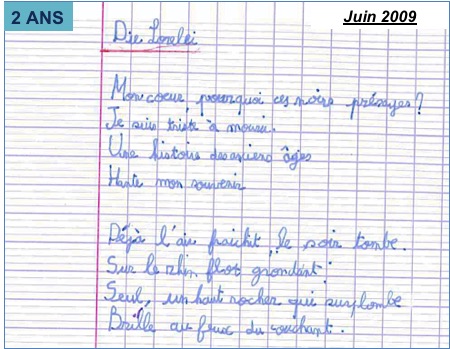 2 ANS
Juin 2009
Die Lorelei
Mon coeur, pourquoi ces noirs présages ?
Je suis triste à mourir.
Une histoire des anciens âges
Hante mon souvenir
Déjà l'air fraichit, le soir tombe.
Sur le rhin, flot grondant ;
Seul, un haut rocher qui surplombe
Brille au feux du couchant.